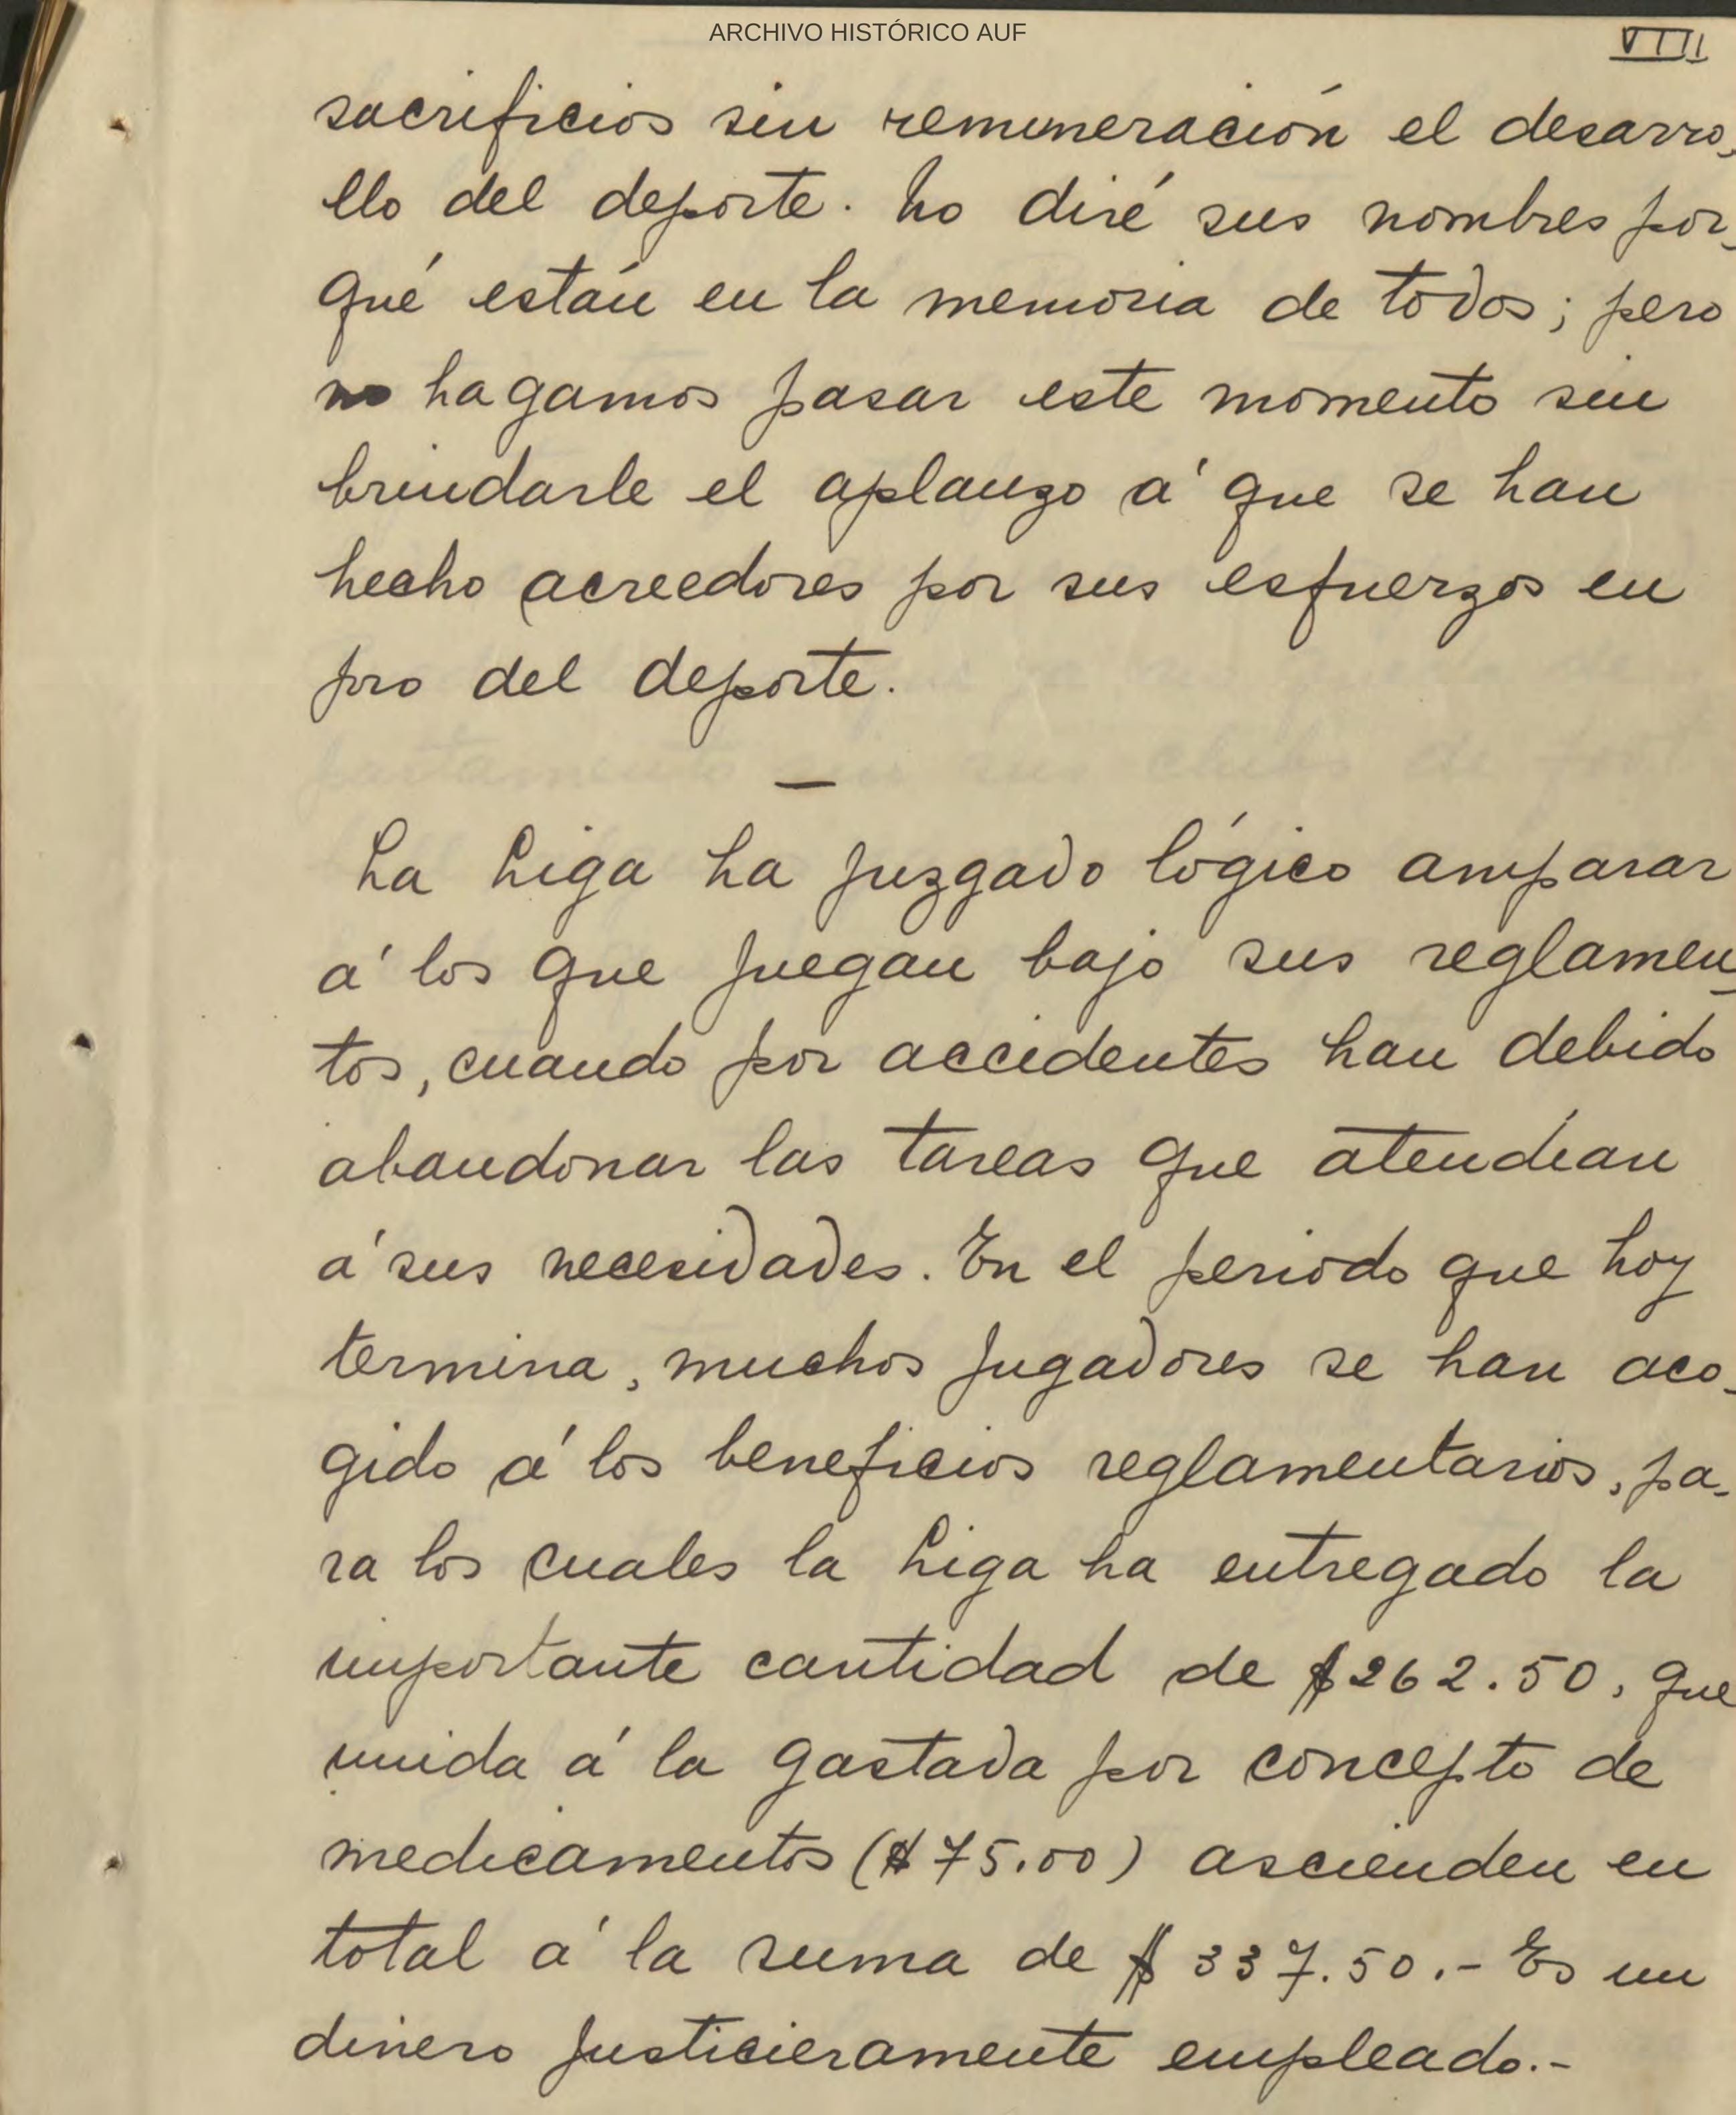 ARCHIVO HISTÓRICO AUF
VIII
sacrificios sin remuneración el desarro-
llo del deporte. No diré sus nombres por-
qué están en la memoria de todos; pero
no hagamos pasar este momento sin
brindarle el aplauzo á que se han
hecho acreedores por sus esfuerzos en
pro del deporte.
—
La Liga ha juzgado lógico amparar
á los que juegan bajo sus reglamen-
tos, cuando por accidentes han debido
abandonar las tareas que atendían
á sus necesidades. En el periodo que hoy
termina, muchos jugadores se han aco-
gido á los beneficios reglamentarios, pa-
ra los cuales la Liga ha entregado la
importante cantidad de $262.50, que
unida á la gastada por concepto de
medicamentos ($75.00) ascienden en
total á la suma de $ 337.50.- Es un
dinero justicieramente empleado.-